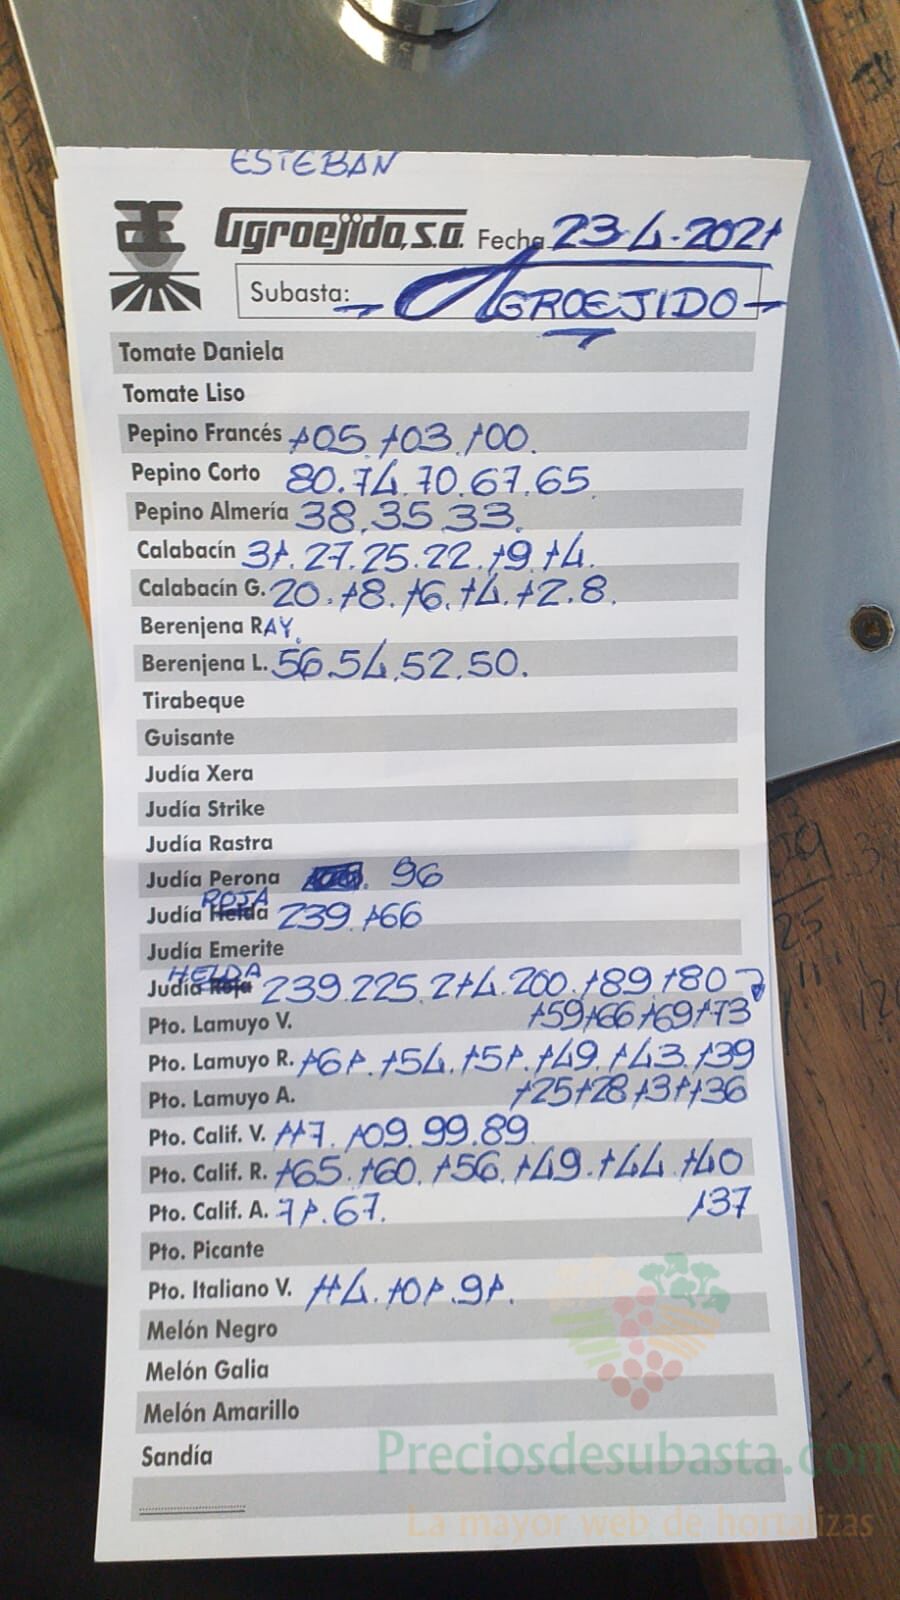 ESTEBAN
Agroejido, S.A. Fecha 23-4-2021
Subasta: - AGROEJIDO -
Tomate Daniela
Tomate Liso
Pepino Francés 105. 103. 100.
Pepino Corto 80. 74. 70. 67. 65.
Pepino Almería 38. 35. 33.
Calabacín 31. 27. 25. 22. 19. 14.
Calabacín G. 20. 18. 16. 14. 12. 8.
Berenjena RAY.
Berenjena L. 56. 54. 52. 50.
Tirabeque
Guisante
Judía Xera
Judía Strike
Judía Rastra
Judía Perona 96
ROJA
Judía Helda 239. 166
Judía Emerite
HELDA
Judía Roja 239. 225. 214. 200. 189. 180
159 166 169 173
Pto. Lamuyo V.
Pto. Lamuyo R. 161. 154. 151. 149. 143. 139
125 128 131 136
Pto. Lamuyo A.
Pto. Calif. V. 117. 109. 99. 89
Pto. Calif. R. 165. 160. 156. 149. 144. 140
137
Pto. Calif. A. 71. 67.
Pto. Picante
Pto. Italiano V. 114. 101. 91.
Melón Negro
Melón Galia
Melón Amarillo
Sandía
Preciosdesubasta.com
La mayor web de hortalizas